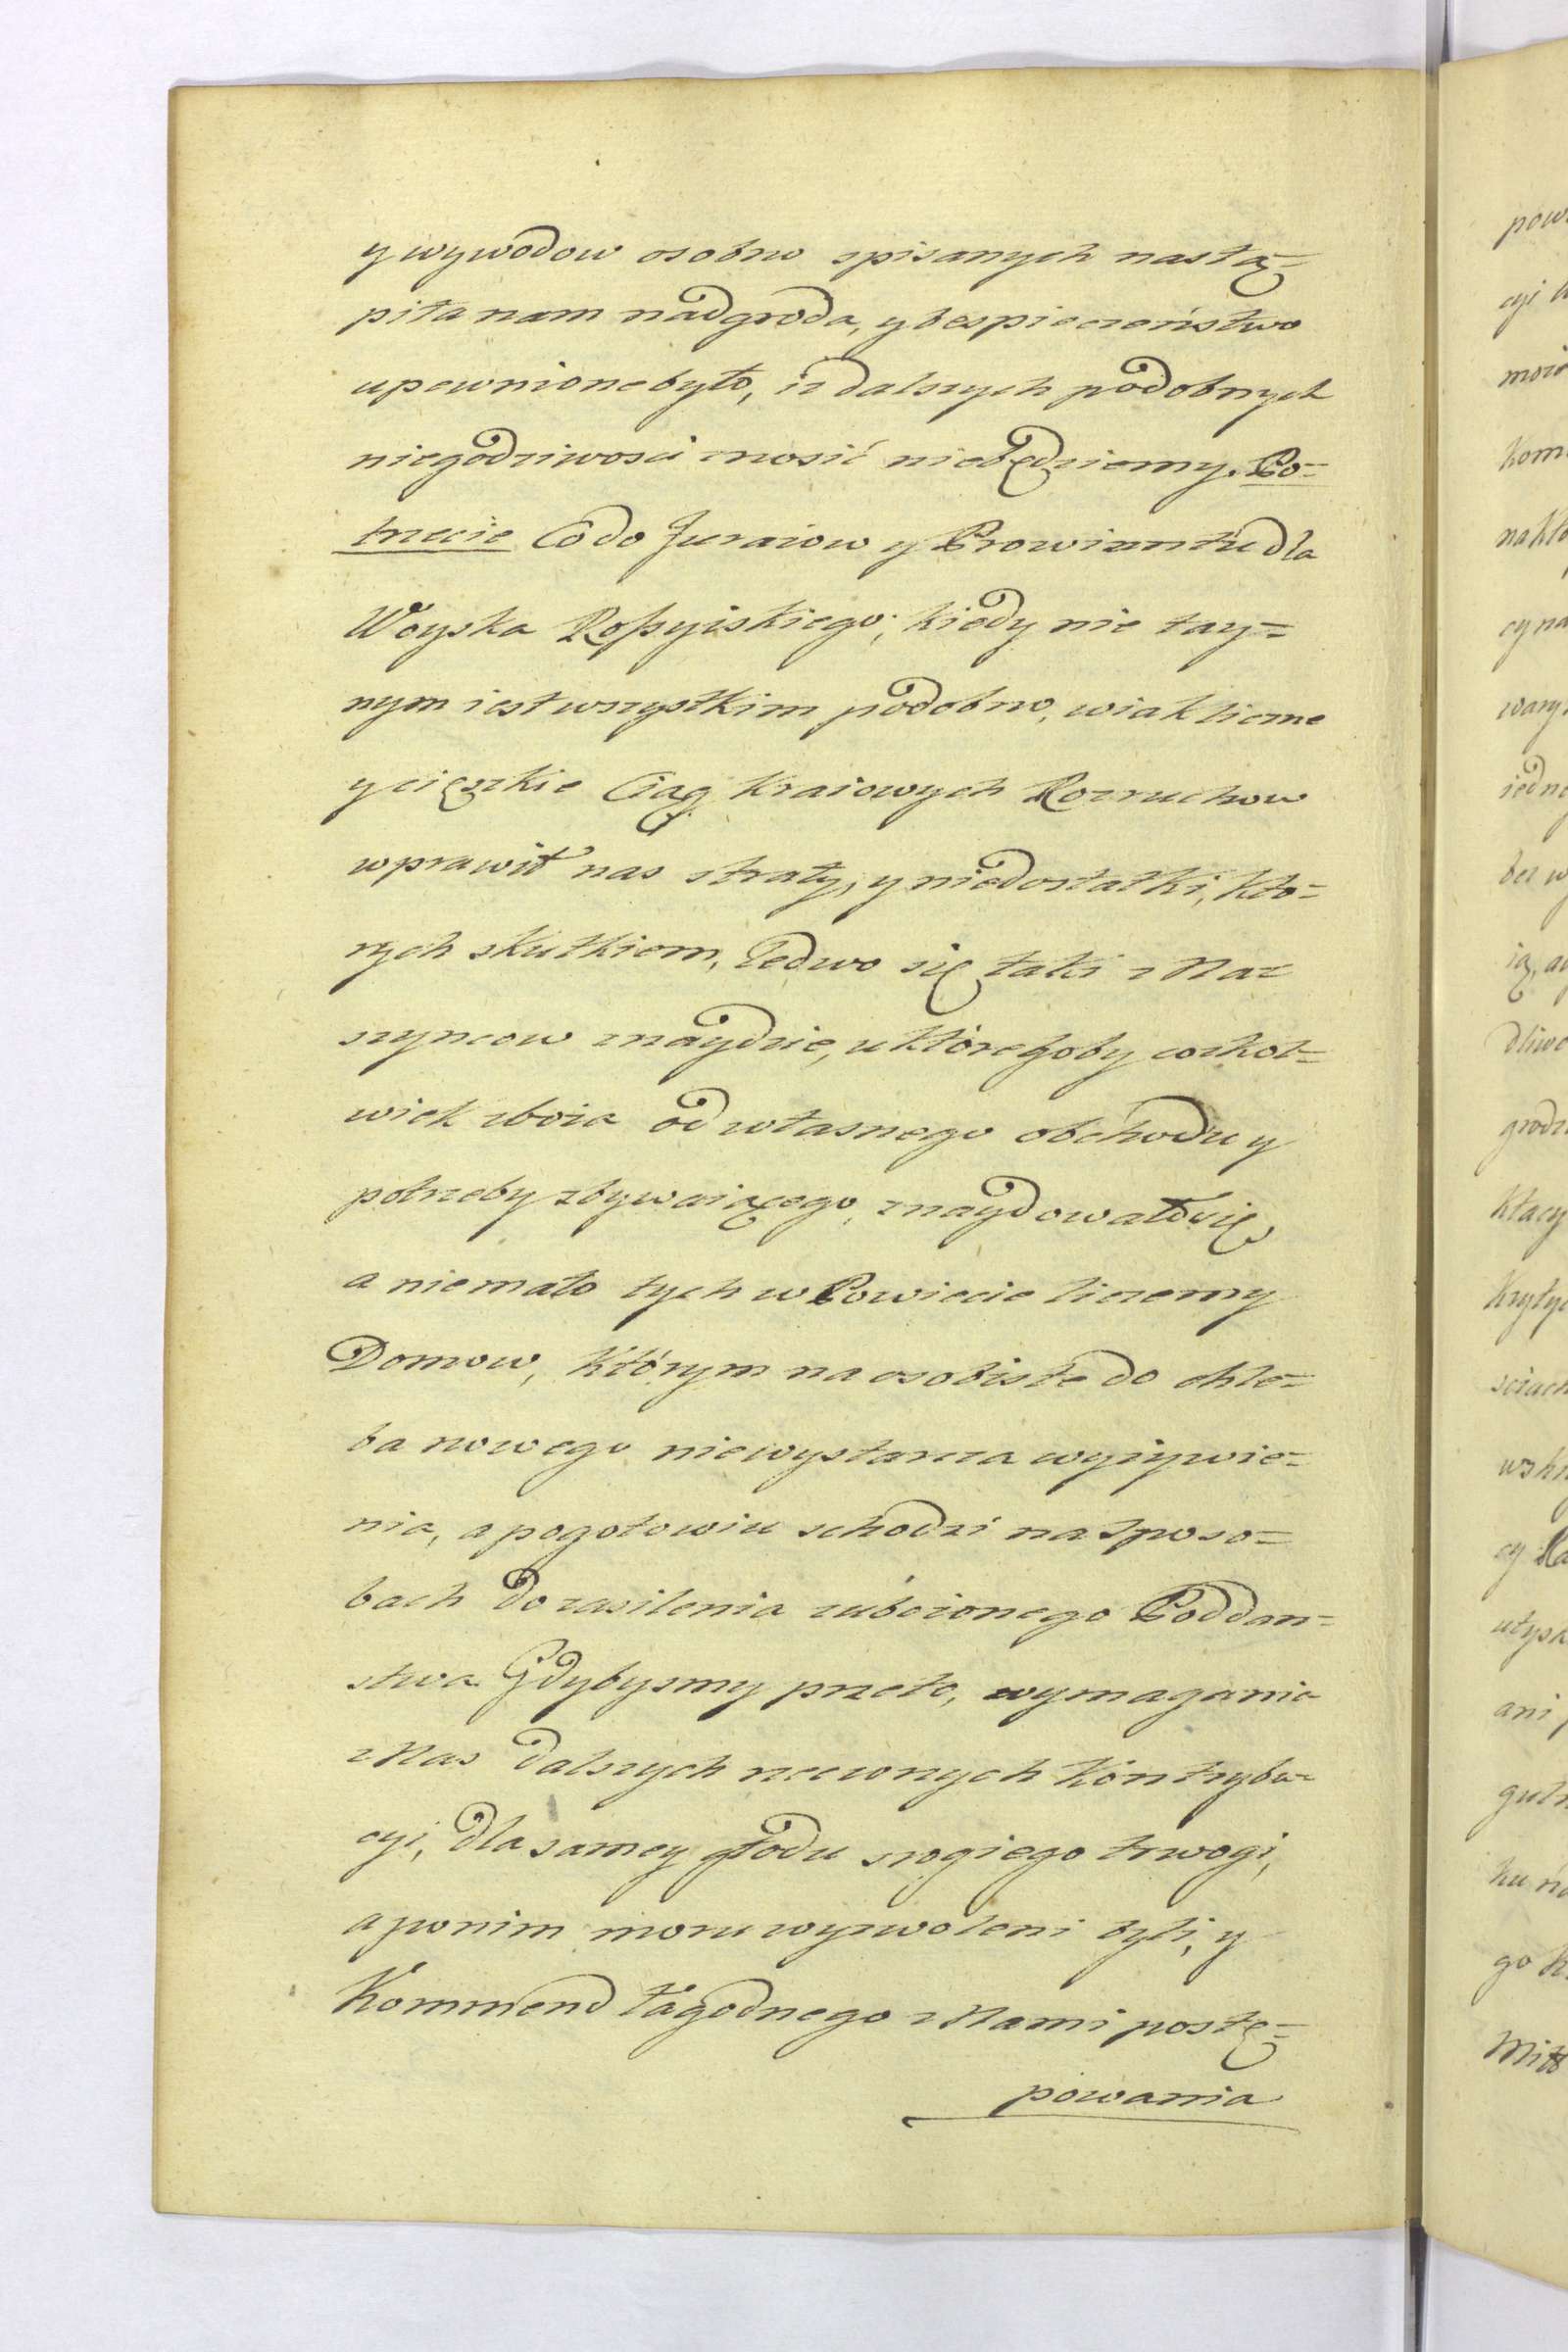 y wywodow osobno spisanych nastą=
piła nam nadgroda, y bespieczeństwo
upewnione było, iz dalszych podobnych
niegodziwosci znosić niebędziemy. Po=
trzecie Co do Furażow y Prowiantu dla
Woyska Roſsyiskiego; kiedy nie tay=
nym iest wszystkim podobno, wiak liczne
y cięszkie Ciąg kraiowych Rozruchow
wprawił nas straty, y niedostatki, kto=
rych skutkiem, ledwo się taki z Na=
szyncow znaydzie, u któregoby cozkol=
wiek zboża od własnego obchodu y
potrzeby zbywaiącego, znaydowało się
a niemało tych w Powiecie liczemy
Domow, którym na osobiste do chle=
ba nowego niewystarcza wyżywie=
nie, a pogotowiu schodzi na sposo=
bach do zasilenia zubożonego Poddan=
stwa Gdybysmy przeto, wymagania
z Nas dalszych rzeczonych kontrybu=
cyi, dla samey głodu srogiego trwogi,
a ponim moru wyzwoleni byli, y
Kommend łagodnego z Nami postę=
powania
pow
cyi
Kom
na kło
cy na
wany
iedn
bez w
ią, a
dliwo
grodz
kłacy
krytyc
sciach
wzkr
cy Na
utysk
ani
gul
ku
go K